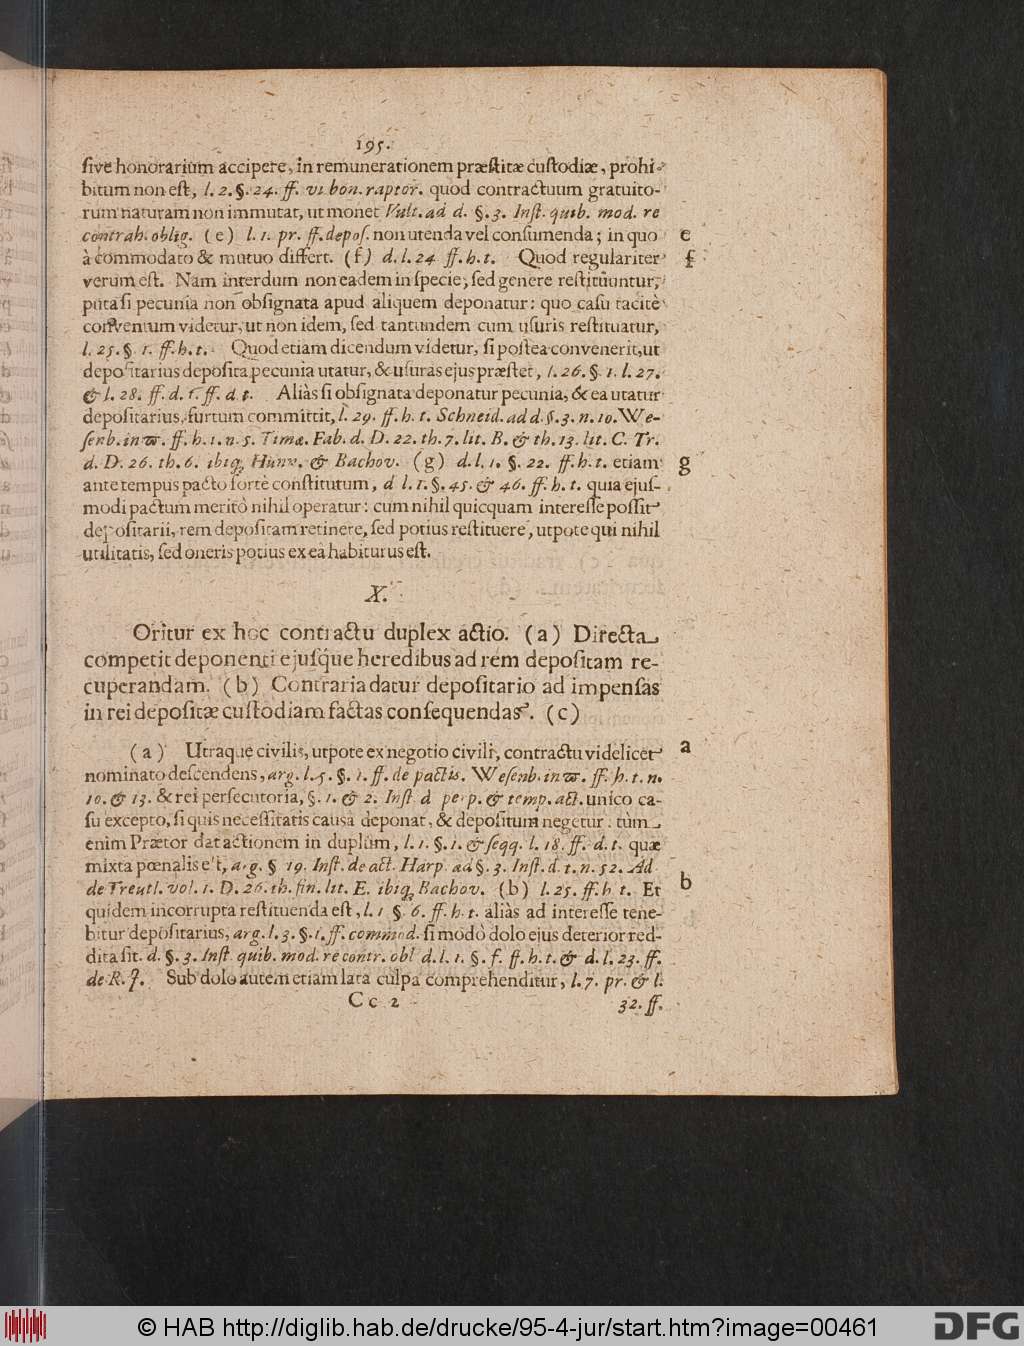 195.
ſive honorarium accipere, in remunerationem præſtitæ cuſtodiæ, prohi-
bitum non eſt, l. 2. §. 24. ff. vi bon. raptor. quod contractuum gratuito-
rum naturam non immutat, ut monet Vult. ad d. §. 3. Inſt. quib. mod. re
contrah. oblig. (e) l. 1. pr. ff. depoſ. non utenda vel conſumenda; in quo e
à commodato & mutuo differt. (f) d. l. 24 ff. h. t. Quod regulariter f
verum eſt. Nam interdum non eadem in ſpecie, ſed genere reſtituuntur,
puta ſi pecunia non obſignata apud aliquem deponatur: quo caſu tacitè
conventum videtur, ut non idem, ſed tantundem cum uſuris reſtituatur,
l. 25. §. 1. ff. h. t. Quod etiam dicendum videtur, ſi poſtea convenerit, ut
depoſitarius depoſita pecunia utatur, & uſuras ejus præſtet, l. 26. §. 1. l. 27.
& l. 28. ff. d. t. ff. d. t. Aliàs ſi obſignata deponatur pecunia, & ea utatur
depoſitarius, furtum committit, l. 29. ff. h. t. Schneid. ad d. §. 3. n. 10. We-
ſenb. in ϖ. ff. h. t. n. 5. Timæ. Fab. d. D. 22. th. 7. lit. B. & th. 13. lit. C. Tr.
d. D. 26. th. 6. ibiq; Hunn. & Bachov. (g) d. l. 1. §. 22. ff. h. t. etiam g
ante tempus pacto fortè conſtitutum, d l. 1. §. 45. & 46. ff. h. t. quia ejuſ-
modi pactum meritò nihil operatur: cum nihil quicquam intereſſe poſſit
depoſitarii, rem depoſitam retinere, ſed potius reſtituere, utpote qui nihil
utilitatis, ſed oneris potius ex eâ habiturus eſt.
X.
Oritur ex hoc contractu duplex actio. (a) Directa
competit deponenti ejuſque heredibus ad rem depoſitam re-
cuperandam. (b) Contraria datur depoſitario ad impenſas
in rei depoſitæ cuſtodiam factas conſequendas. (c)
(a) Utraque civilis, utpote ex negotio civili, contractu videlicet a
nominato deſcendens, arg. l. 5. §. 1. ff. de pactis. Weſenb. in ϖ. ff. h. t. n.
10. & 13. & rei perſecutoria, §. 1. & 2. Inſt d perp. & temp. act. unico ca-
ſu excepto, ſi quis neceſſitatis causâ deponat, & depoſitum negetur: tùm
enim Prætor dat actionem in duplum, l. 1. §. 1. & ſeqq. l. 18. ff. d. t. quæ
mixta pœnalis eſt, arg. § 19. Inſt. de act. Harp. ad §. 3. Inſt. d. t. n. 52. Ad
de Treutl. vol. 1. D. 26. th. fin. lit. E. ibiq; Bachov. (b) l. 25. ff. h. t. Et b
quidem incorrupta reſtituenda eſt, l. 1 §. 6. ff. h. t. aliàs ad intereſſe tene-
bitur depoſitarius, arg. l. 3. §. 1. ff. commod. ſi modò dolo ejus deterior red-
dita ſit. d. §. 3. Inſt. quib. mod. re contr. obl d. l. 1. §. f. ff. h. t. & d. l. 23. ff.
de R. J. Sub dolo autem etiam lata culpa comprehenditur, l. 7. pr. & l.
Cc 2 32. ff.
© HAB http://diglib.hab.de/drucke/95-4-jur/start.htm?image=00461
DFG